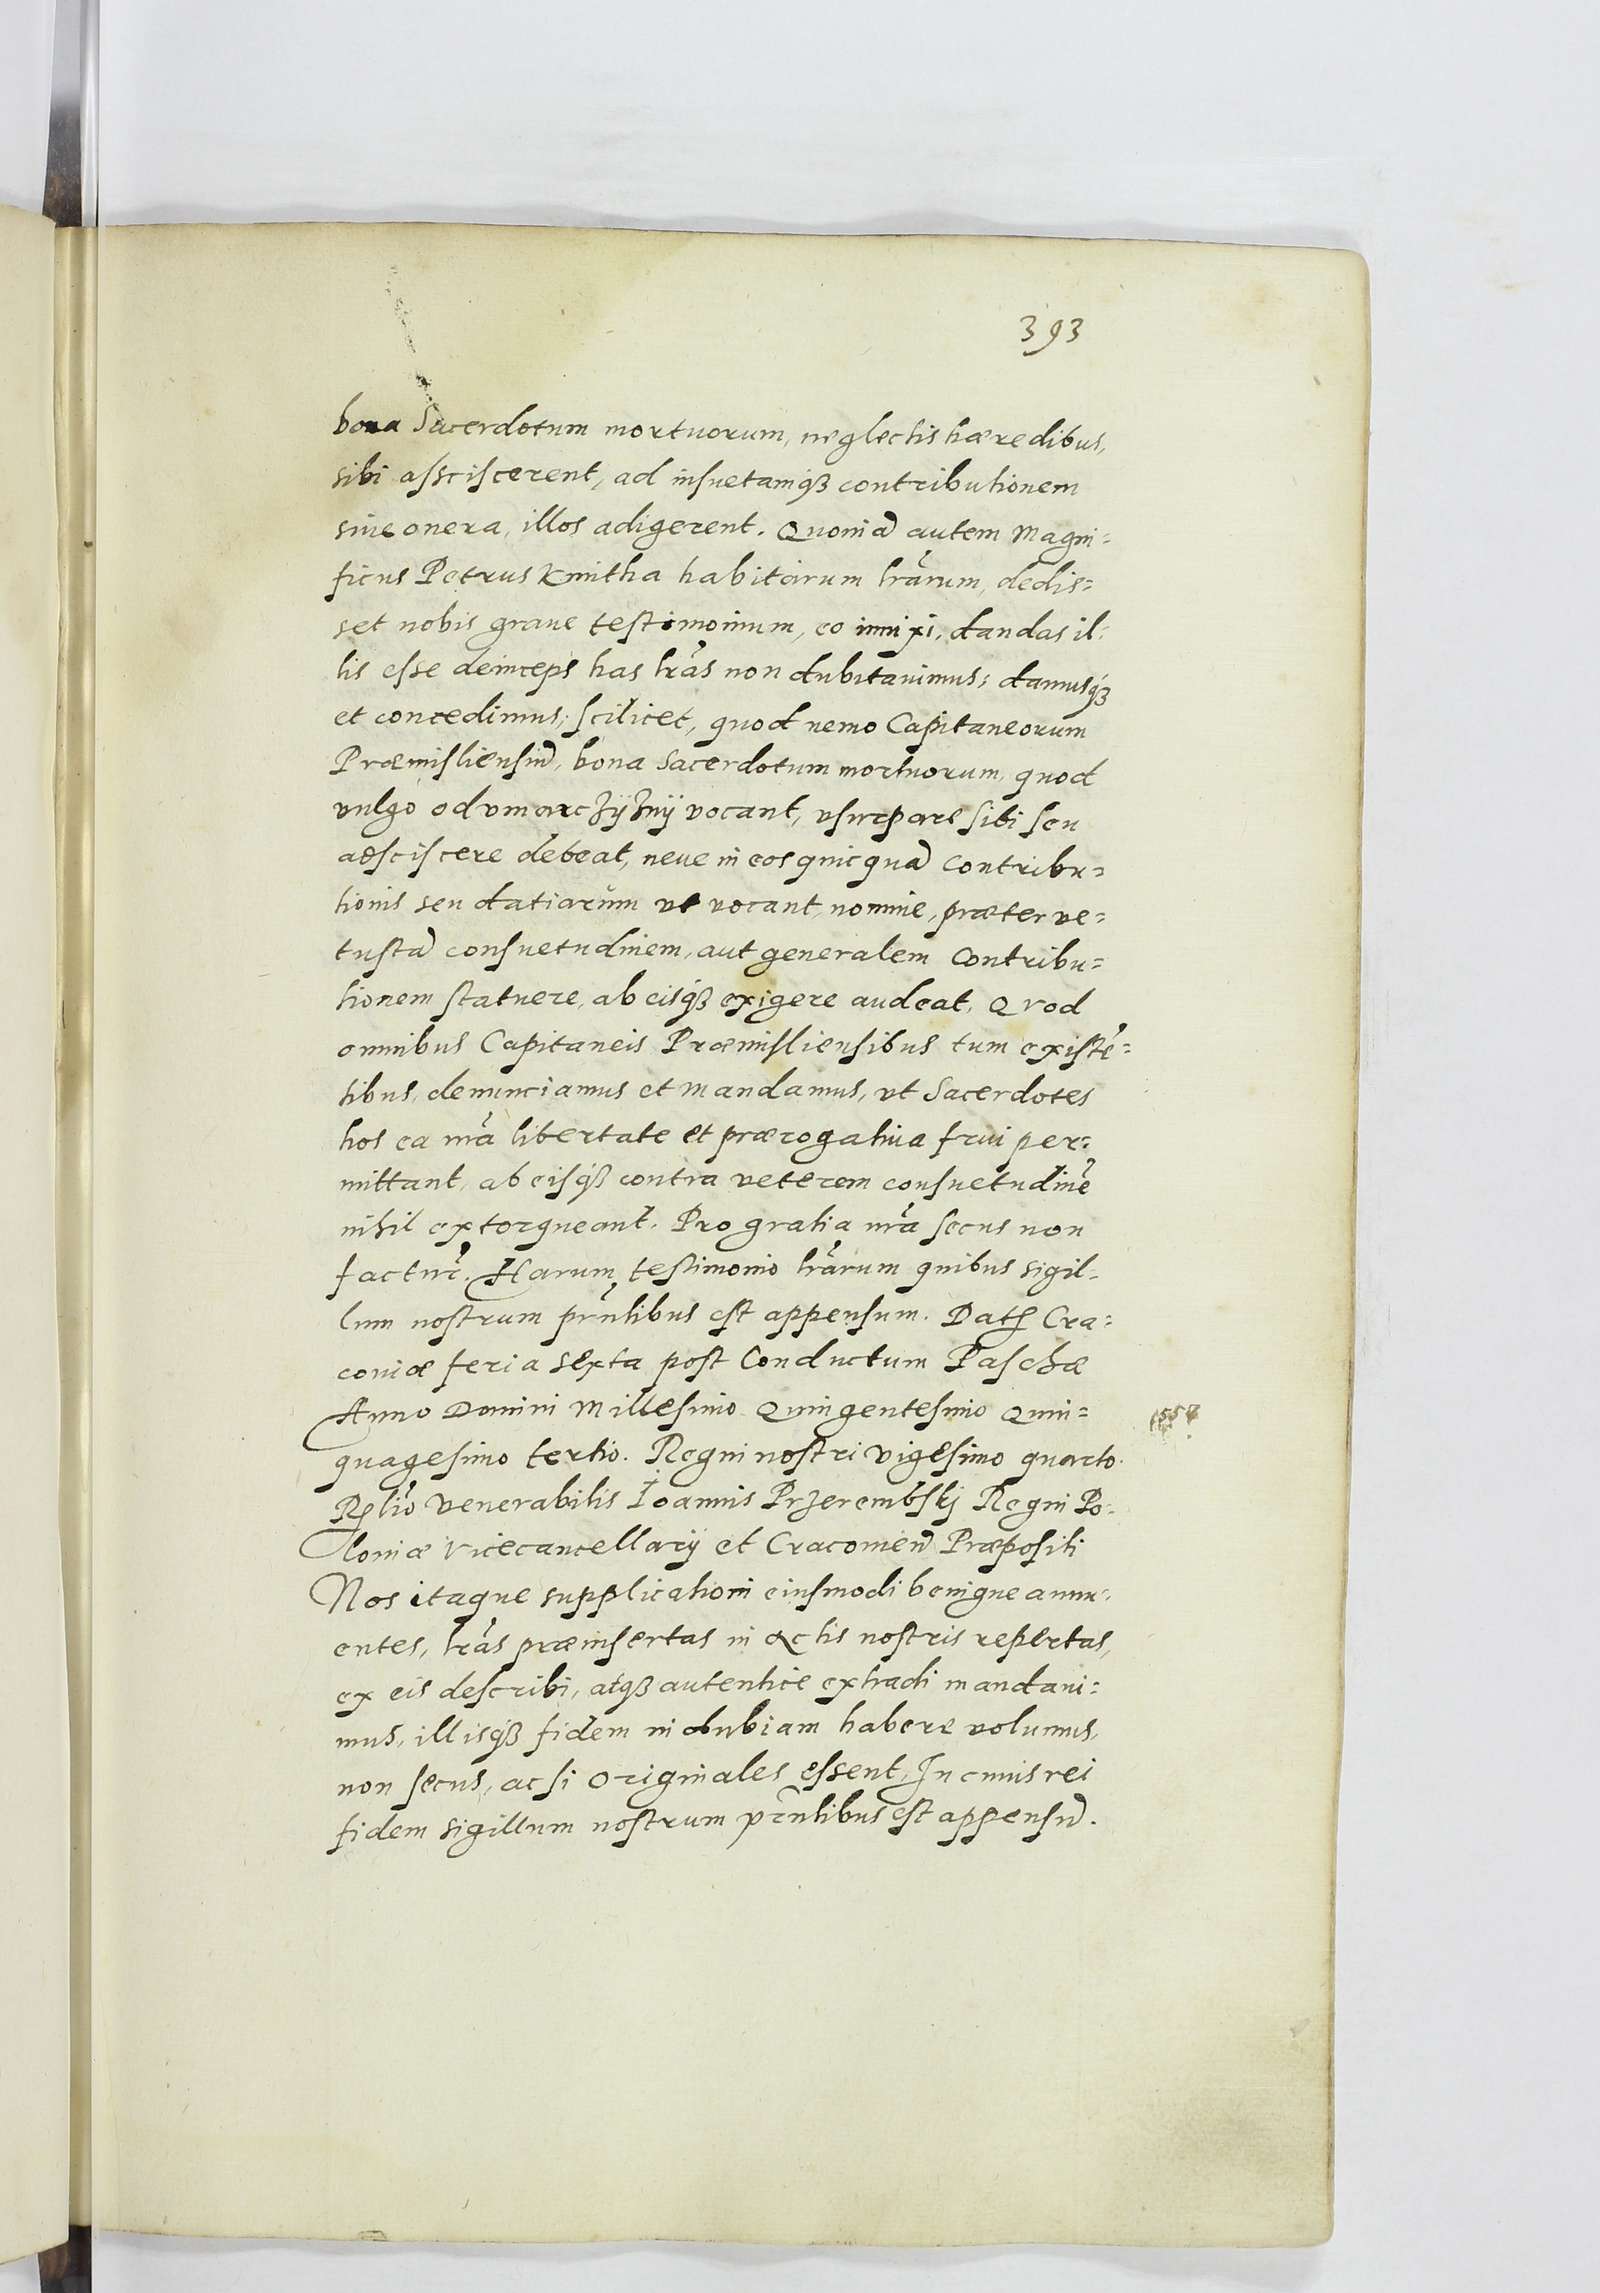 393
bona Sacerdotum mortuorum, neglectis hæredibus,
sibi assciscerent, ad insuetamq́ꝫ contributionem
siue onera, illos adigerent. Quoniã autem Magni=
ficus Petrus Kmitha habitarum lr̃arum, dedis=
set nobis graue testimonium, eo innixi, dandas il=
lis esse deinceps has lr̃as non dubitauimus; damusq́ꝫ
et concedimus, scilicet, quod nemo Capitaneorum
Præmisliensiũ, bona Sacerdotum mortuorum, quod
vulgo odvmarczÿznÿ vocant, vsurpare sibi seu
adsciscere debeat, neue in eos quicquã contribu=
tionis seu datiarum vt vocant, nomine, præter ve=
tustã consuetudinem, aut generalem contribu=
tionem statuere, ab eisq́ꝫ exigere audeat. Quod
omnibus Capitaneis Præmisliensibus tum existẽ=
tibus, denunciamus et mandamus, vt Sacerdotes
hos ea nr̃a libertate et prærogatiua frui per=
mittant, ab eisq́ꝫ contra veterem consuetudinẽ
nihil extorqueant. Pro gratia nr̃a secus non
factur̃. Harum testimonio lr̃arum quibus sigil=
lum nostrum pr̃ntibus est appensum. Datꝭ Cra=
couiæ feria sexta post Conductum Paschæ
Anno Domini Millesimo Quingentesimo Quin=
quagesimo tertio. Regni nostri vigesimo quarto.
Rel̃io venerabilis Ioannis Przerembskj Regni Po=
loniæ Vicecancellarij et Cracouieñ Præpositi
Nos itaque supplicationi eiusmodi benigne annu=
entes, lr̃as præinsertas in actis nostris repertas,
ex eis describi, atq́ꝫ autentice extradi mandaui=
mus, illisq́ꝫ fidem indubiam habere volumus,
non secus, ac si originales essent. In cuius rei
fidem sigillum nostrum pr̃ntibus est appensũ.